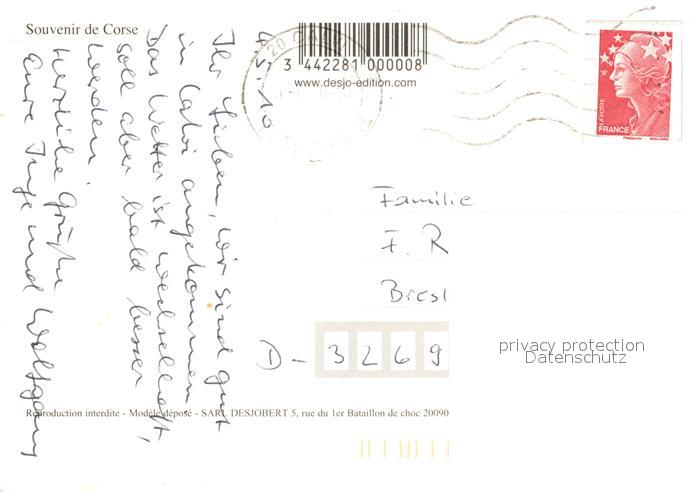 Souvenir de Corse
3 442281 000008
www.desjo-edition.com
LA POSTE
FRANCE
4.5.10
Ihr Lieben, wir sind gut
in Calvi angekommen
Das Wetter ist wechselhaft,
soll aber bald besser
werden.
Herzliche Grüße
Eure Inge und Wolfgang
Familie
F. R
Bresl
D - 3269
privacy protection
Datenschutz
Reproduction interdite - Modèle déposé - SARL DESJOBERT 5, rue du 1er Bataillon de choc 20090